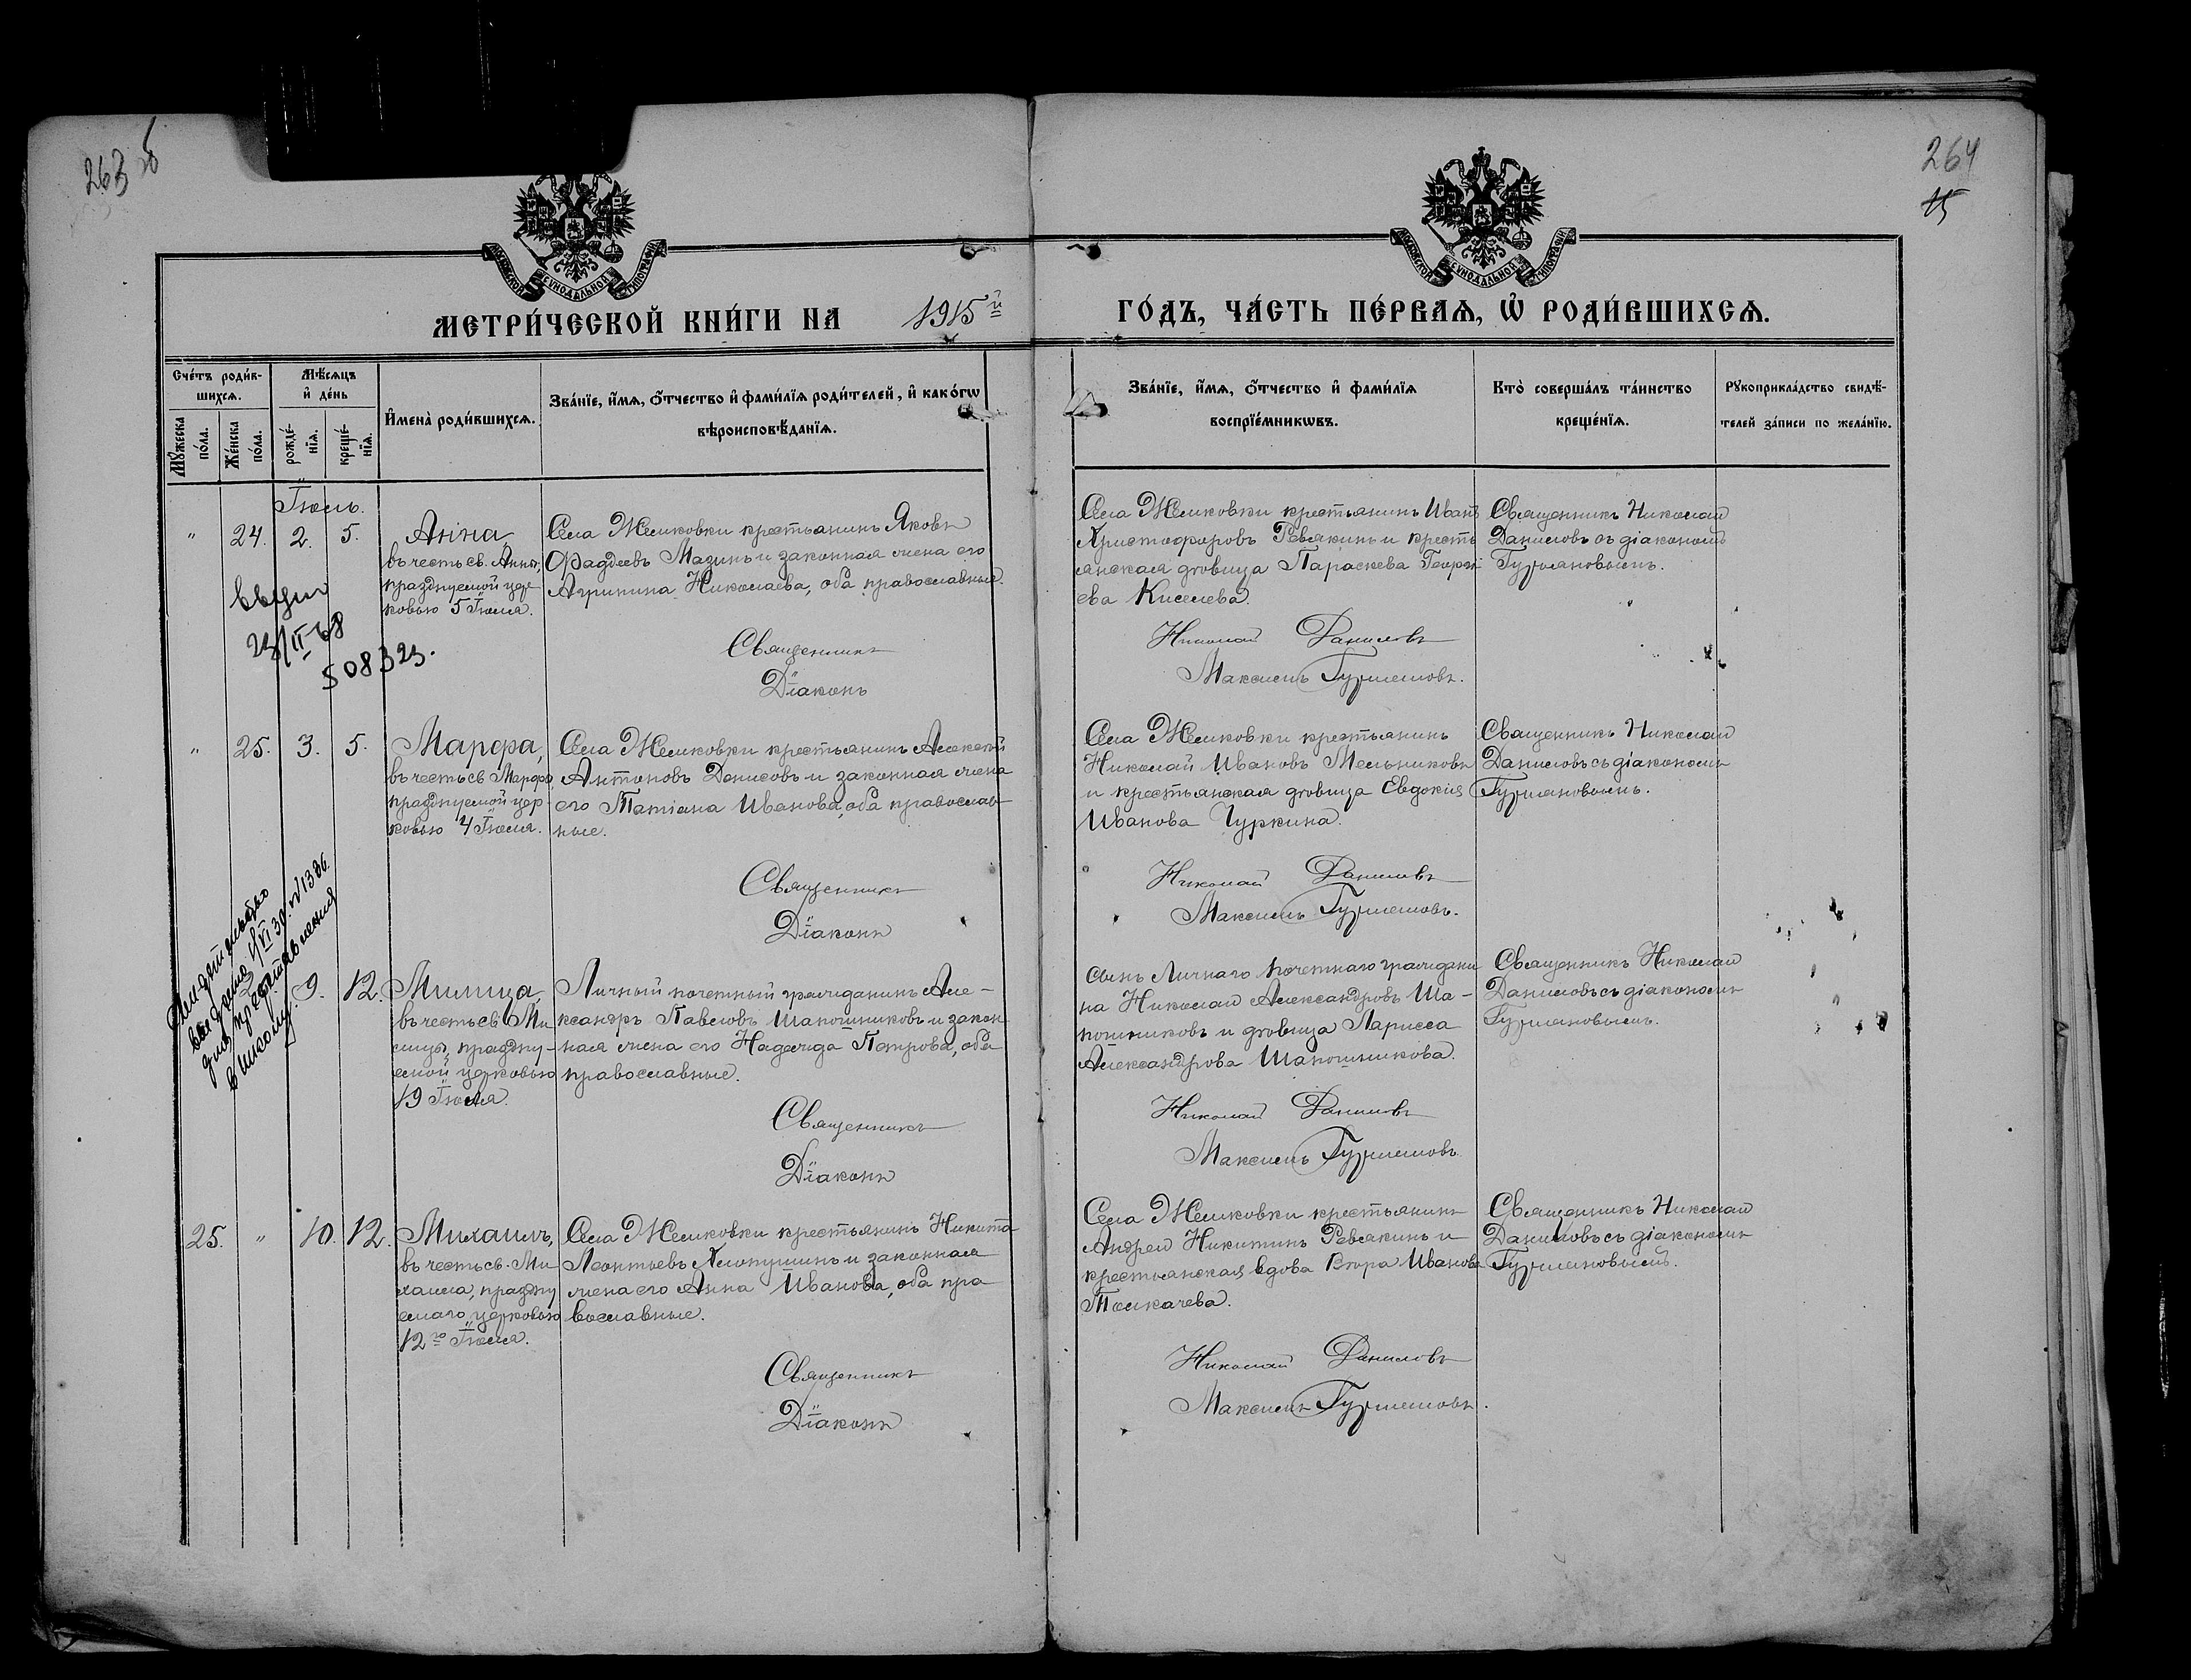 263 б
264
15
МОСКОВСКОЙ СУНОДАЛЬНОЙ ТИПОГРАФІИ
МОСКОВСКОЙ СУНОДАЛЬНОЙ ТИПОГРАФІИ
МЕТРИ́ЧЕСКОЙ КНИ́ГИ НА 1915й
ГО́ДЪ, ЧА́СТЬ ПЕ́РВАѦ, Ѡ҆ РОДИ́ВШИХСѦ.
Сче́тъ роди́в-
шихсѧ.
Мꙋ́жеска
по́ла.
Же́нска
по́ла.
Мѣ́сѧцъ
и҆ де́нь
рожде́-
нїѧ.
креще́-
нїѧ.
И҆мена̀ роди́вшихсѧ.
Зва́нїе, и҆́мѧ, ѻ҆́тчество и҆ фами́лїѧ роди́телей, и҆ како́гѡ
вѣроисповѣ́данїѧ.
Зва́нїе, и҆́мѧ, ѻ҆́тчество и҆ фами́лїѧ
воспрїе́мникѡвъ.
Кто̀ соверша́лъ та́инство
креще́нїѧ.
Рꙋкоприкла́дство свидѣ́-
телей за́писи по жела́нїю.
Іюль.
" 24. 2. 5.
Анна
въ честь св. Анны,
празднуемой цер-
ковью 5 Іюля.
Села Жемковки крестьянинъ Яковъ
Фаддеевъ Мазинъ и законная жена его
Агрипина Николаева, оба православные.
Священникъ
Діаконъ
Села Жемковки крестьянинъ Иванъ
Христофоровъ Ревякинъ и кресть
янская дѣвица Параскева Георгі
ева Киселева.
Николай Даниловъ
Максимъ Гурмешовъ.
Священникъ Николай
Даниловъ съ діакономъ
23/II-68
508323.
" 25. 3. 5.
Марфа,
въ честь св Марфы
празднуемой цер
ковью 4 Іюля.
Села Жемковки крестьянинъ Алексѣй
Антоновъ Денисовъ и законная жена
его Татіана Иванова, оба православ-
ные.
Священникъ
Діаконъ
Села Жемковки крестьянинъ
Николай Ивановъ Мельниковъ
и крестьянская дѣвица Евдокія
Иванова Чуркина.
Николай Даниловъ
Максимъ Гурмешовъ.
Священникъ Николай
Даниловъ съ діакономъ
9. 12.
Милица,
въ честь св. Ми
лицы, праздну-
емой церковью
19 Іюля.
Личный почетный гражданинъ Але-
ксандръ Павловъ Шапошниковъ и закон
ная жена его Надежда Петрова, оба
православные.
Священникъ
Діаконъ
Сынъ Личнаго почетнаго граждани
на Николай Александровъ Ша-
пошниковъ и дѣвица Лариса
Александрова Шапошникова.
Николай Даниловъ
Максимъ Гурмешовъ
Священникъ Николай
Даниловъ съ діакономъ
25. " 10. 12.
Михаилъ,
въ честь св. Ми
хаила, праздну
емаго церковью
12го Іюля.
Села Жемковки крестьянинъ Никита
Леонтьевъ Хлопушинъ и законная
жена его Анна Иванова, оба пра
вославные.
Священникъ
Діаконъ
Села Жемковки крестьянинъ
Андрей Никитинъ Ревякинъ и
крестьянская вдова Иванова
Толкачева.
Николай Даниловъ
Максимъ Гурмешовъ.
Священникъ Николай
Даниловъ съ діакономъ